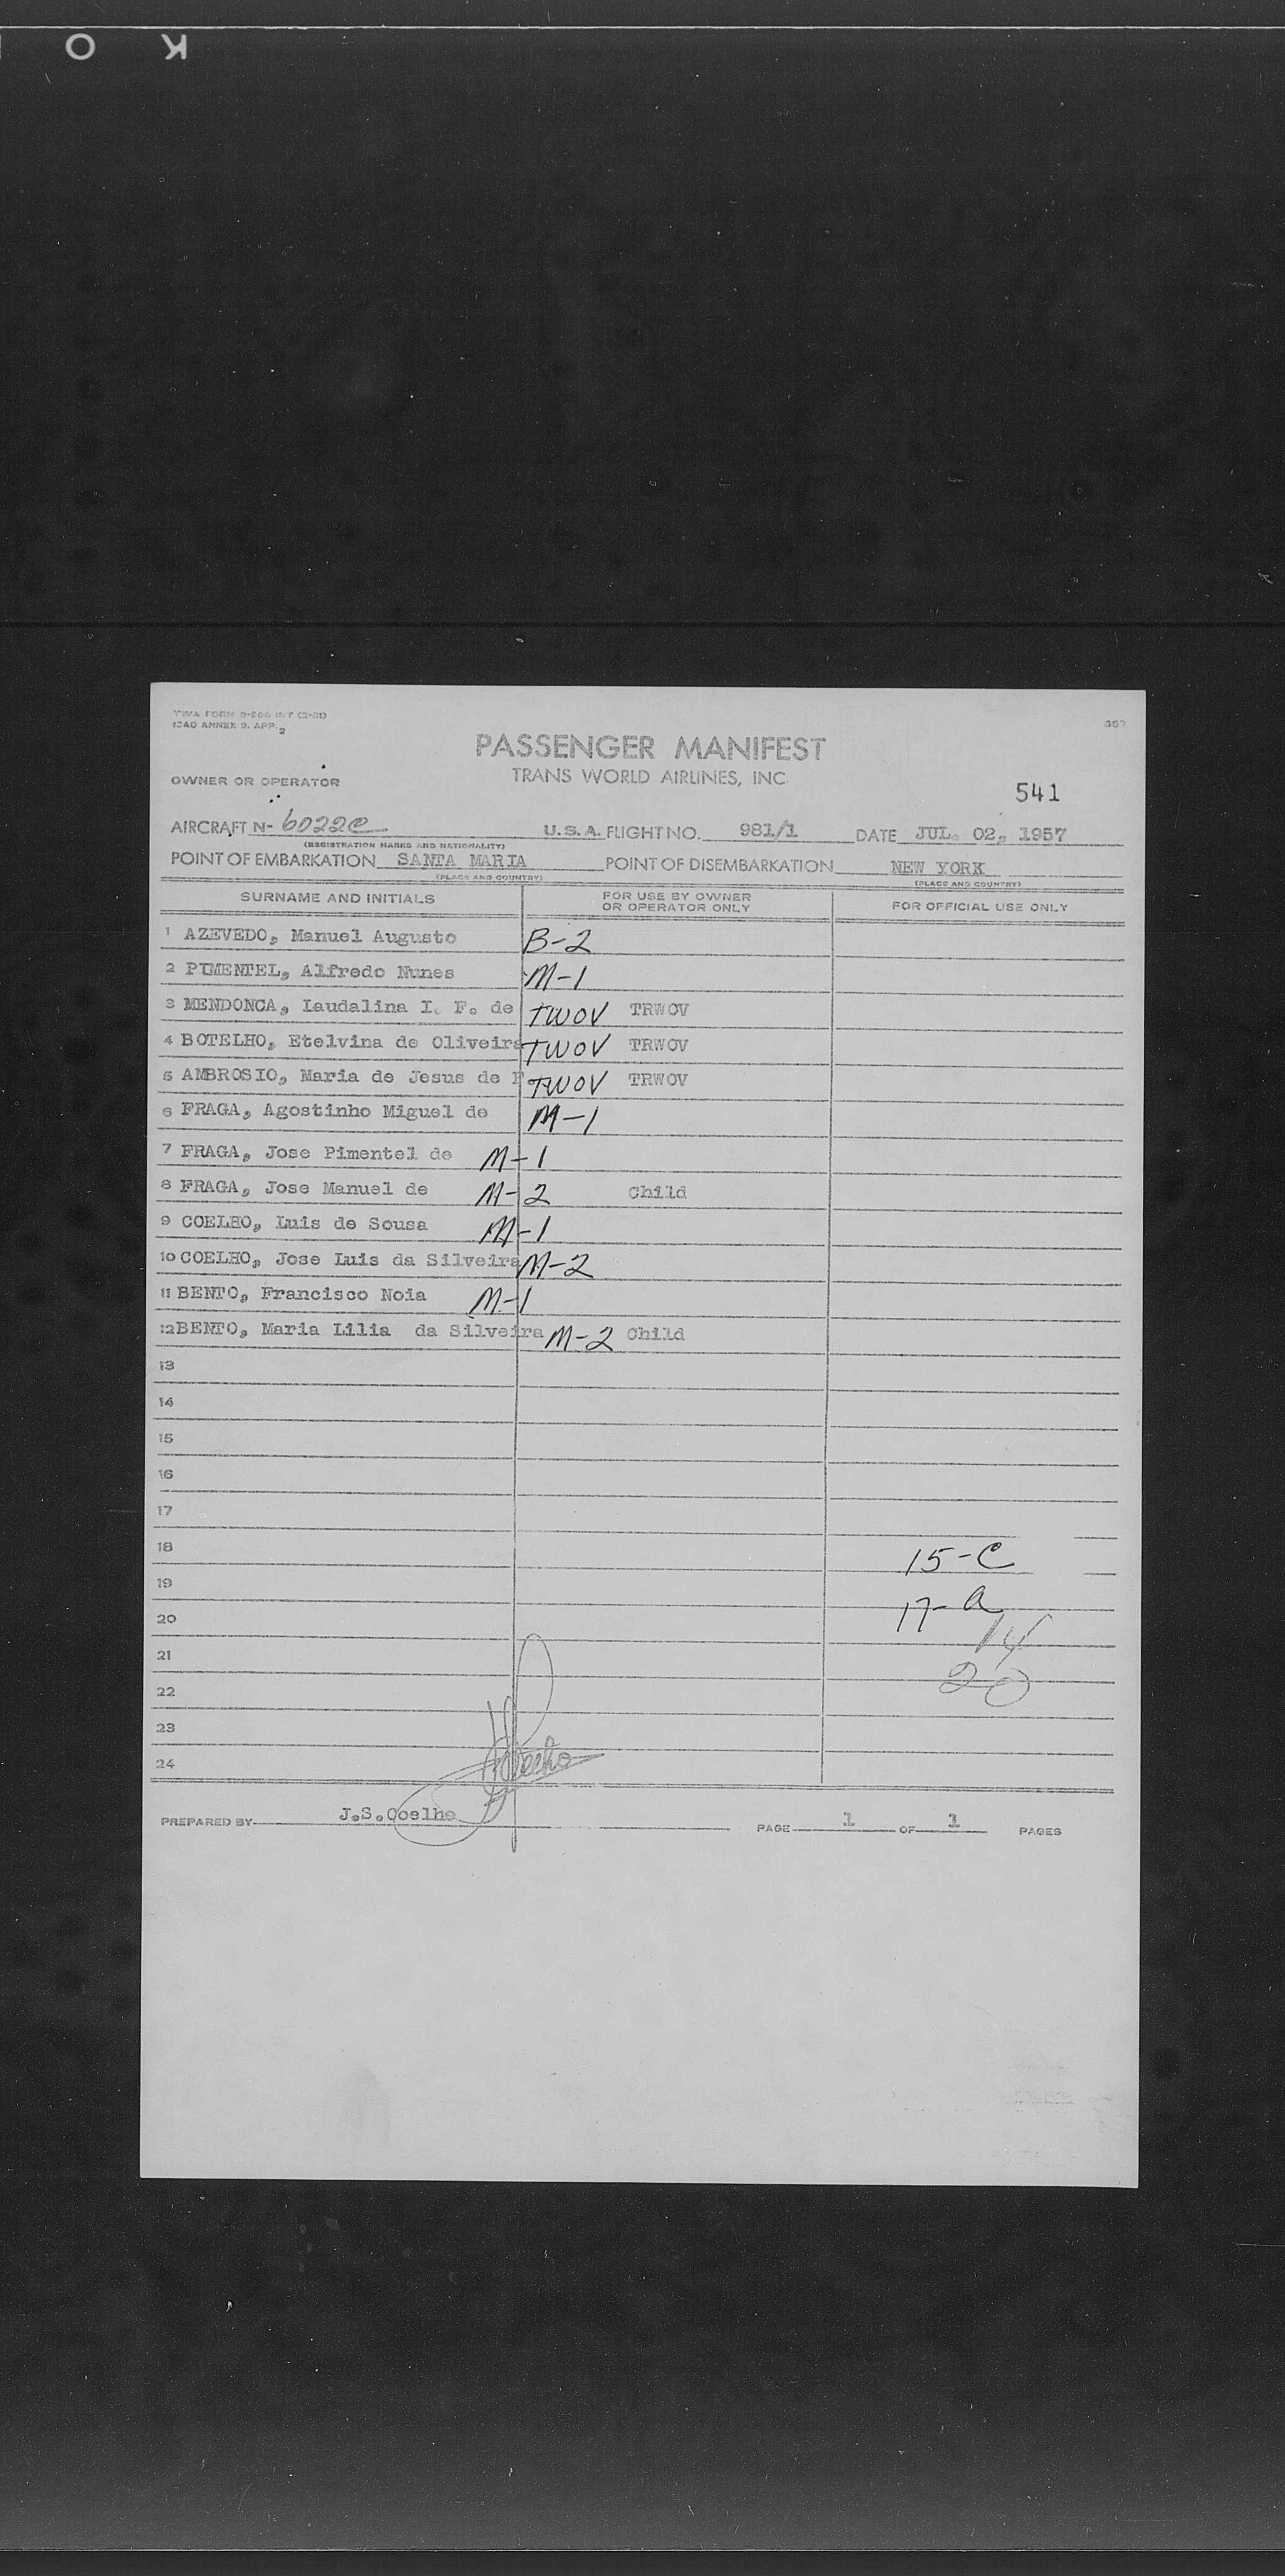 O K
TWA FORM
ICAO ANNEX 9. APP. 2
PASSENGER MANIFEST
OWNER OR OPERATOR TRANS WORLD AIRLINES, INC.
541
AIRCRAFT N- 6022C U.S.A. FLIGHT NO. 981/1 DATE JUL. 02, 1957
(REGISTRATION MARKS AND NATIONALITY)
POINT OF EMBARKATION SANTA MARIA POINT OF DISEMBARKATION NEW YORK
(PLACE AND COUNTRY) (PLACE AND COUNTRY)
SURNAME AND INITIALS FOR USE BY OWNER OR OPERATOR ONLY FOR OFFICIAL USE ONLY
1 AZEVEDO, Manuel Augusto B-2
2 PIMENTEL, Alfredo Nunes M-1
3 MENDONCA, Laudalina I. F. de TWOV TRWOV
4 BOTELHO, Etelvina de Oliveira TWOV TRWOV
5 AMBROSIO, Maria de Jesus de F TWOV TRWOV
6 FRAGA, Agostinho Miguel de M-1
7 FRAGA, Jose Pimentel de M-1
8 FRAGA, Jose Manuel de M-2 Child
9 COELHO, Luis de Sousa M-1
10 COELHO, Jose Luis da Silveira M-2
11 BENTO, Francisco Noia M-1
12 BENTO, Maria Lilia da Silveira M-2 Child
13
14
15
16
17
18 15-C
19 17-A
20 14
21 20
22
23
24
PREPARED BY J.S.Coelho PAGE 1 OF 1 PAGES